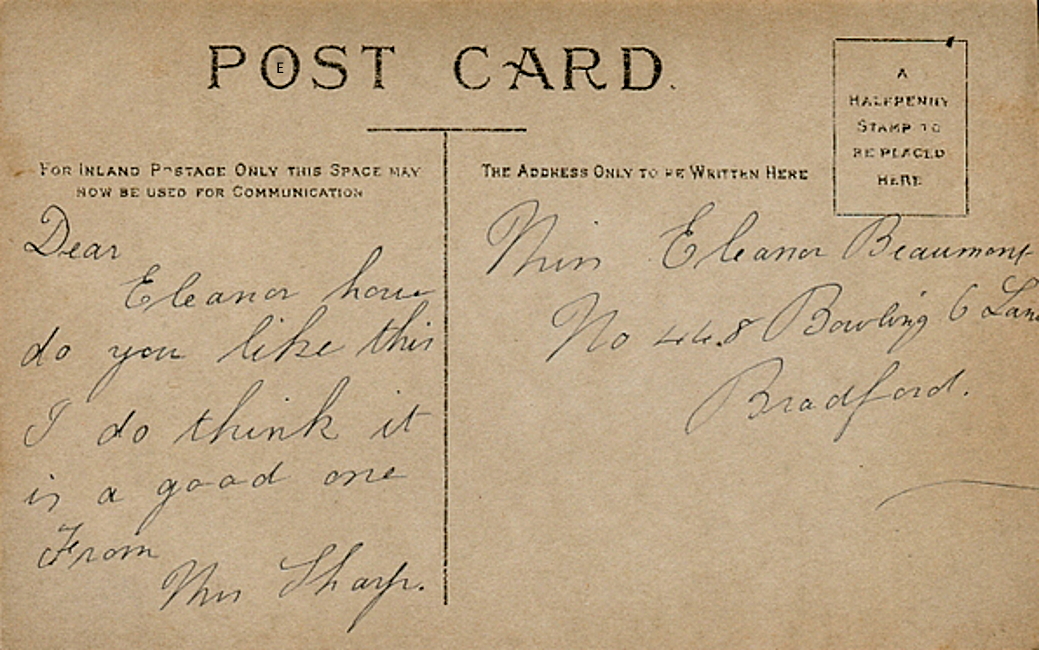 POST CARD.
E
FOR INLAND POSTAGE ONLY THIS SPACE MAY
NOW BE USED FOR COMMUNICATION
Dear
Eleanor how
do you like this
I do think it
is a good one
From
Mrs Sharp.
THE ADDRESS ONLY TO BE WRITTEN HERE
A
HALFPENNY
STAMP TO
BE PLACED
HERE
Miss Eleanor Beaumont
No 448 Bowling 6 Lane
Bradford.